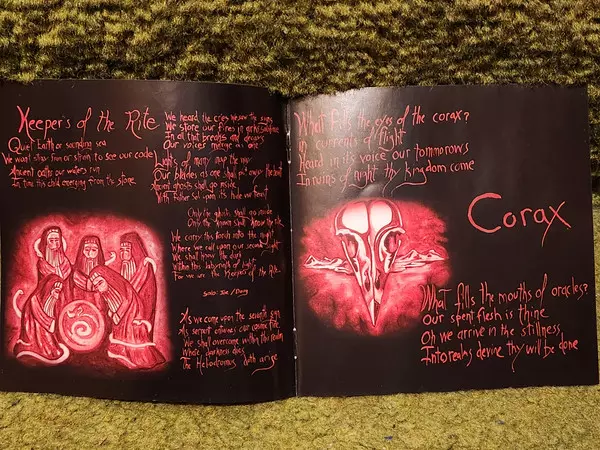 Keeper's of the Rite
Quiet Earth or sounding sea
We want slow run or strain to see our code
Ancient oaths our waters run
In time this child emerging from the stone
We heard the cries we saw the signs
We store our fires in
In all that breaks and
Our voices merge as one
of many map the way
Our blades as one shall
Ancient ghosts shall go inside
With Father Sol upon its hide we hunt
Only the ghosts shall go inside
Only the known shall know the rite
We carry this torch into the night
Where we will call upon our second sight
We shall know the days
Within this labyrinth of light
For we are the Keepers of the Rite
Solo: Joe / Doug
As we come upon the seventh sign
As serpent entwines our cosmic fire
We shall overcome within this realm
Where darkness dies
The Heliodromus doth arise
What fills the eyes of the corax?
In current of flight
Heard in its voice our tommorows
In ruins of night thy kingdom come
Corax
What fills the mouths of oracles?
Our spent flesh is thine
Oh we arrive in the stillness
Into realms devine thy will be done